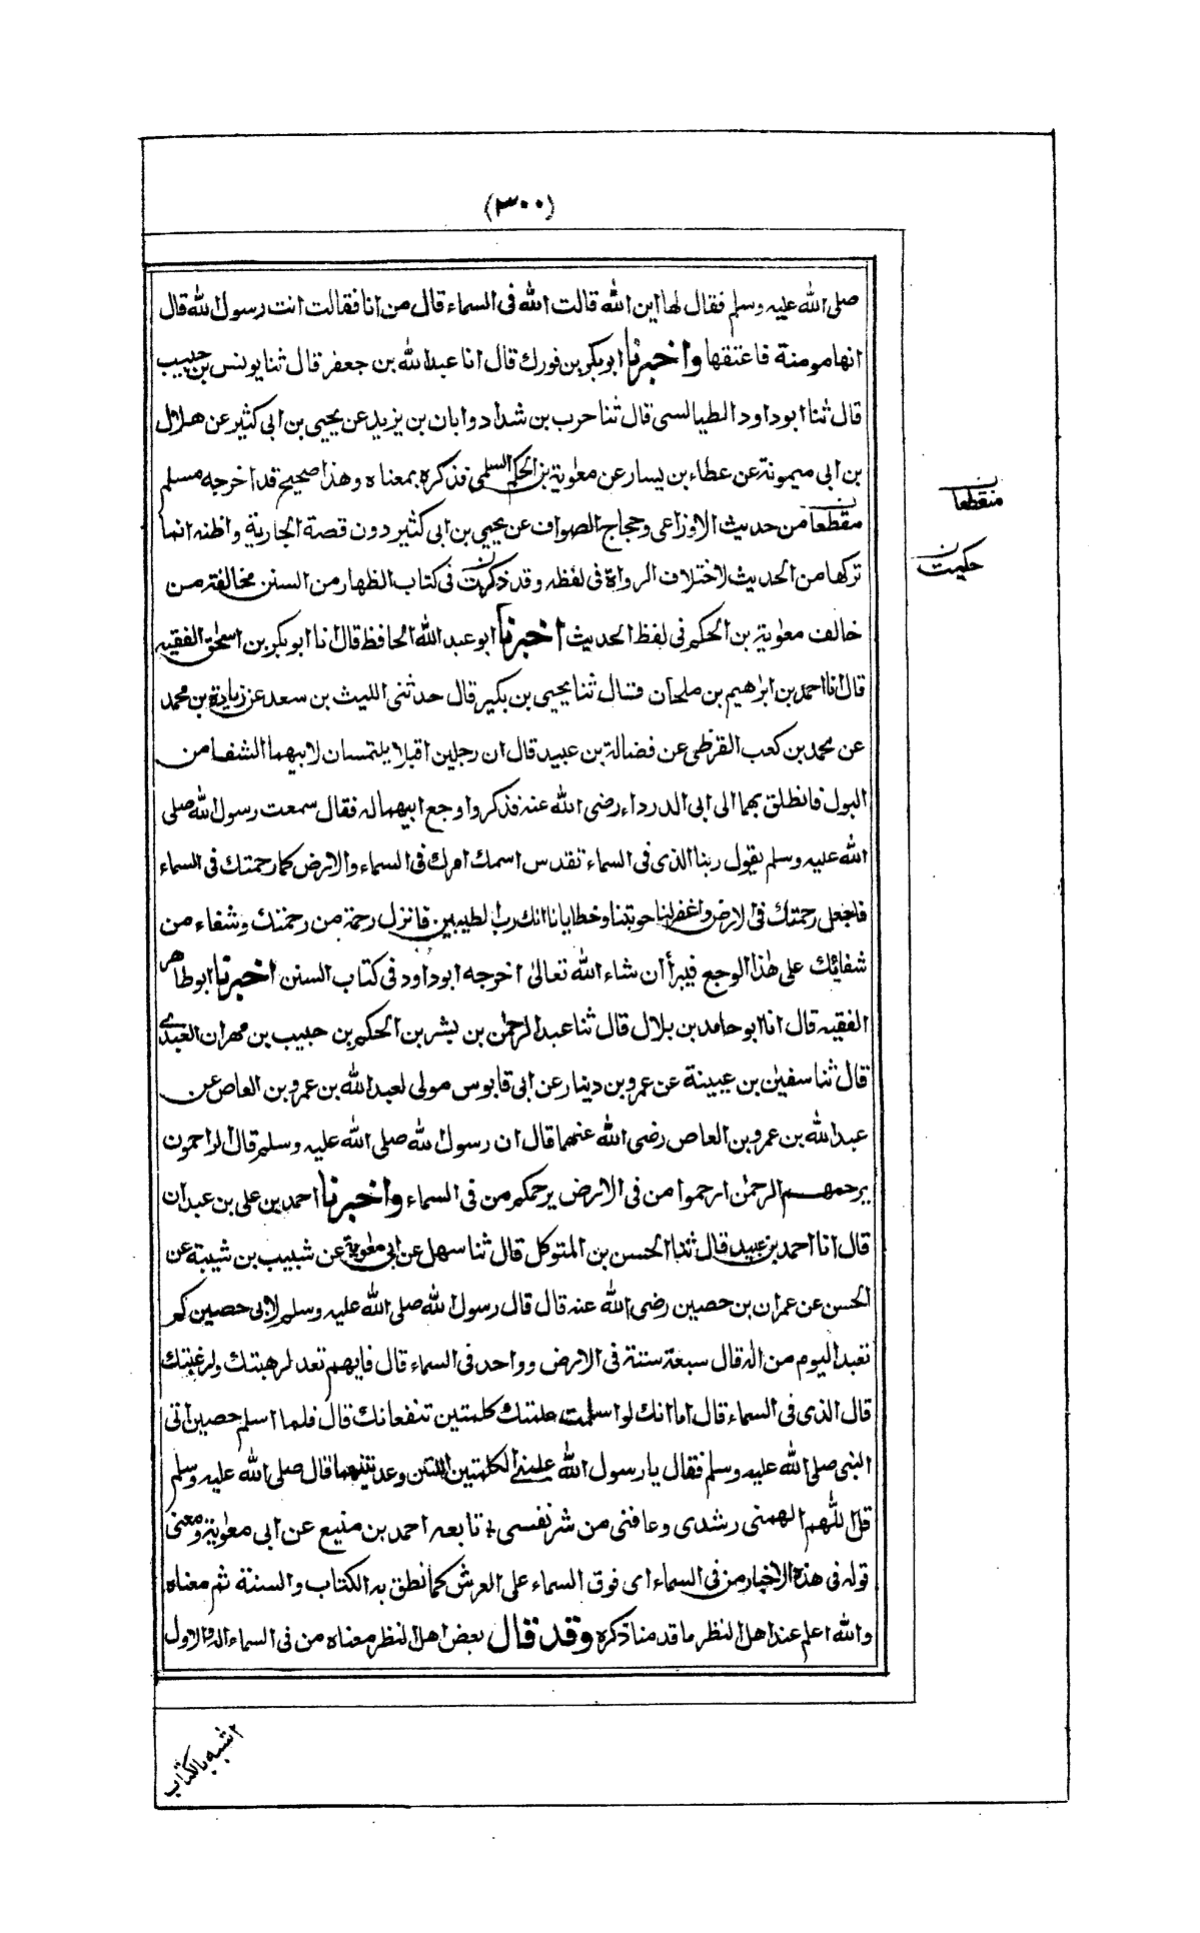 (٣٠٠)
صلى الله عليه وسلم فقال لها اين الله قالت الله فى السماء قال من انا فقالت انت رسول الله قال
انها مومنة فاعتقها واخبرنا ابوبكر بن فورك قال انا عبد الله بن جعفر قال ثنا يونس بن حبيب
قال ثنا ابوداود الطيالسى قال ثنا حرب بن شداد وابان بن يزيد عن يحيى بن ابى كثير عن هلال
بن ابى ميمونة عن عطاء بن يسار عن معٰوية بن الحكم السلمى فذكره بمعناه وهذا صحيح قد اخرجه مسلم
منقطعان
مقطعاً من حديث الاوزاعى وحجاج الصواف عن يحيى بن ابى كثير دون قصة الجارية واظنه انما
حكيت
تركها من الحديث لاختلاف الرواة فى لفظه وقد ذكرت فى كتاب الظهار من السنن مخالفة من
خالف معٰوية بن الحكم فى لفظ الحديث اخبرنا ابو عبد الله الحافظ قال انا ابوبكر بن اسحٰق الفقيه
قال انا احمد بن ابرٰهيم بن ملحان قال ثنا يحيى بن بكير قال حدثنى الليث بن سعد عن زيادة بن محمد
عن محمد بن كعب القرظى عن فضالة بن عبيد قال ان رجلين اقبلا يلتمسان لابيهما الشفا من
البول فانطلق بهما الى ابى الدرداء رضى الله عنه فذكروا وجع ابيهما له فقال سمعت رسول الله صلى
الله عليه وسلم يقول ربنا الذى فى السماء تقدس اسمك امرك فى السماء والارض كما رحمتك فى السماء
فاجعل رحمتك فى الارض واغفر لنا حوبتنا وخطايانا انك رب الطيبين فانزل رحمة من رحمتك وشفاء من
شفائك على هٰذا الوجع فيبرأ ان شاء الله تعالىٰ اخرجه ابوداود فى كتاب السنن اخبرنا ابوطاهر
الفقيه قال انا ابو حامد بن بلال قال ثنا عبد الرحمٰن بن بشر بن الحكم بن حبيب بن مهران العبدى
قال ثنا سفيٰن بن عيينة عن عمرو بن دينار عن ابى قابوس مولى لعبد الله بن عمرو بن العاص عن
عبد الله بن عمرو بن العاص رضى الله عنهما قال ان رسول الله صلى الله عليه وسلم قال الراحمون
يرحمهم الرحمٰن ارحموا من فى الارض يرحمكم من فى السماء واخبرنا احمد بن على بن عبدان
قال انا احمد بن عبيد قال ثنا الحسن بن المتوكل قال ثنا سهل عن ابى معٰوية عن شبيب بن شيبة عن
الحسن عن عمران بن حصين رضى الله عنه قال قال رسول الله صلى الله عليه وسلم لابى حصين كم
تعبد اليوم من اله قال سبعة ستة فى الارض وواحد فى السماء قال فايهم تعد لرهبتك ولرغبتك
قال الذى فى السماء قال اما انك لو اسلمت علمتك كلمتين تنفعانك قال فلما اسلم حصين اتى
النبى صلى الله عليه وسلم فقال يا رسول الله علمنى الكلمتين اللتين وعدتنيهما قال صلى الله عليه وسلم
قل اللّٰهم الهمنى رشدى وعافنى من شر نفسى تابعه احمد بن منيع عن ابى معٰوية ومعنى
قوله فى هذه الاخبار من فى السماء اى فوق السماء على العرش كما نطق به الكتاب والسنة ثم معناه
والله اعلم عند اهل النظر ما قدمنا ذكره وقد قال بعض اهل النظر معناه من فى السماء اله والاول
اشبه بالكتاب